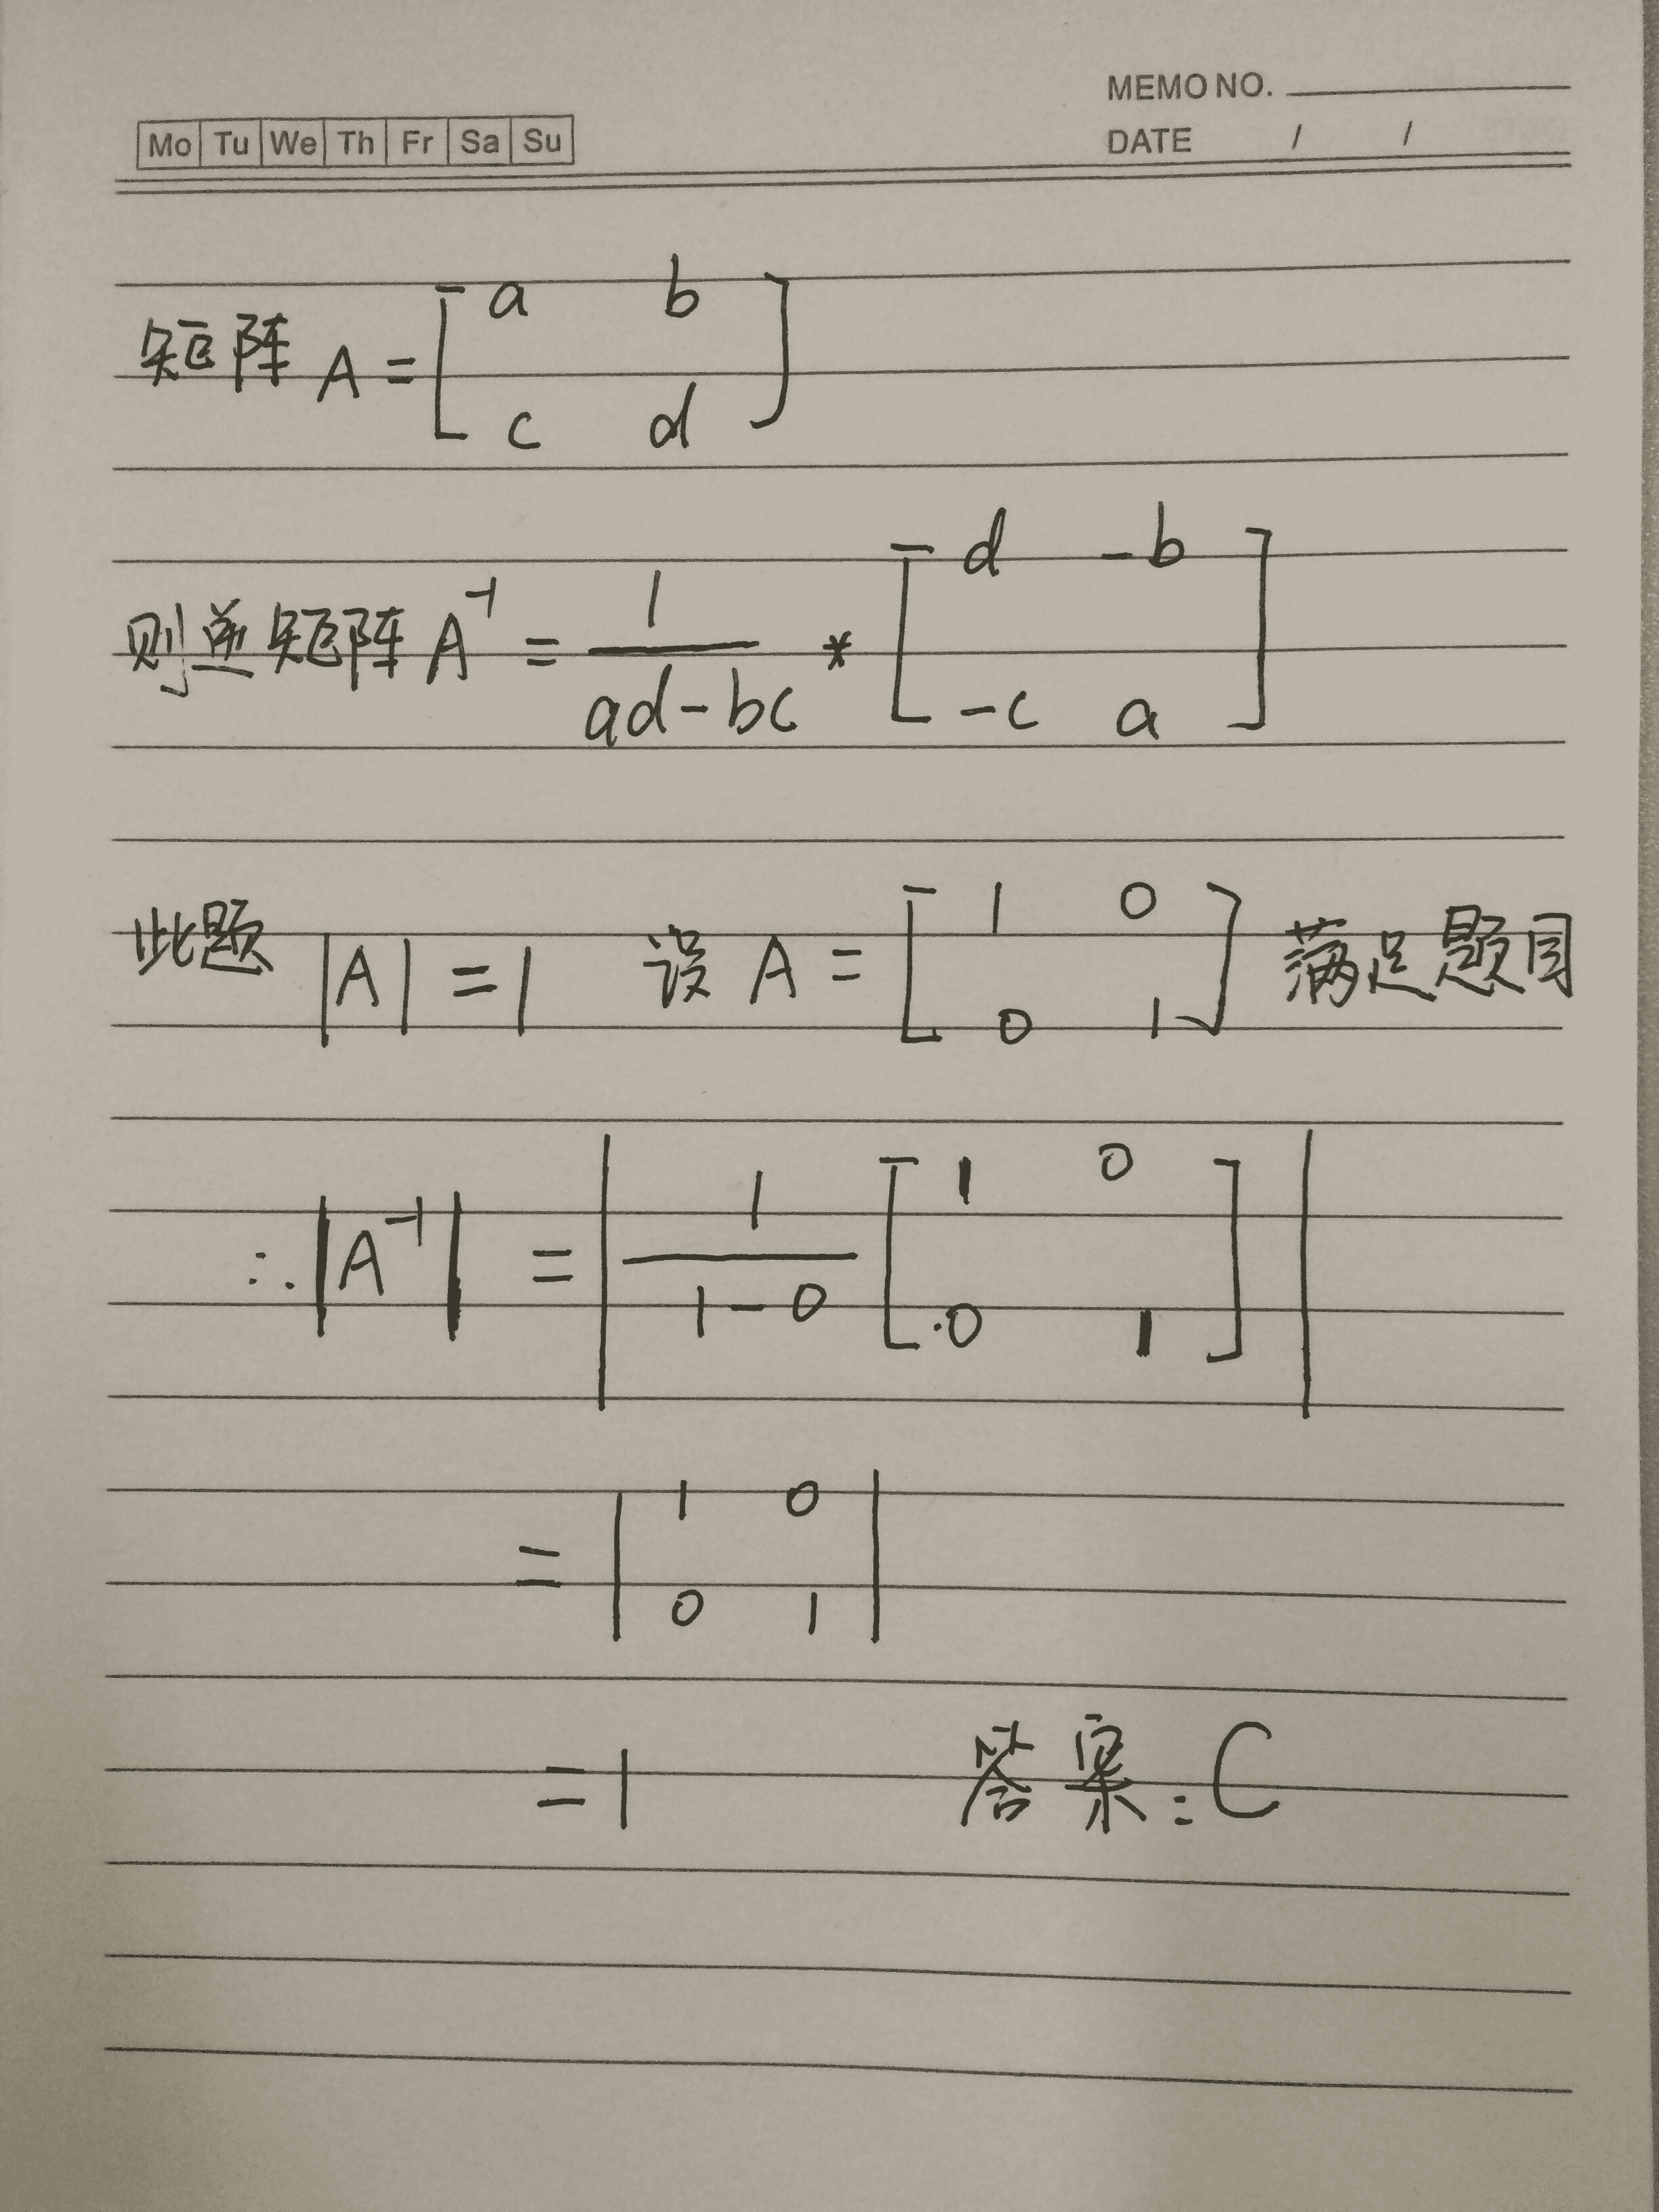 MEMO NO.
Mo Tu We Th Fr Sa Su DATE / /
矩阵 A = [ a b
c d ]
则逆矩阵 A⁻¹ = 1/(ad-bc) * [ d -b
-c a ]
此题 |A| = 1 设 A = [ 1 0
0 1 ] 满足题目
∴ |A⁻¹| = | 1/(1-0) [ 1 0
0 1 ] |
= | 1 0
0 1 |
= 1 答案: C